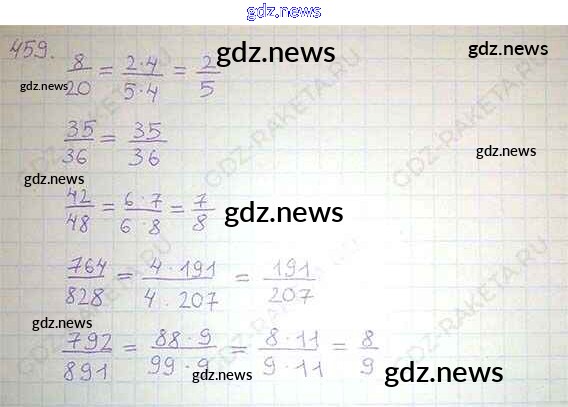 gdz.news
459. 8/20 = 2·4/5·4 = 2/5
gdz.news
gdz.news
GDZ-RAKETA.RU
35/36 = 35/36
gdz.news
GDZ-RAKETA.RU
gdz.news
42/48 = 6·7/6·8 = 7/8
gdz.news
764/828 = 4·191/4.207 = 191/207
GDZ-RAKETA.RU
gdz.news
792/891 = 88·9/99·9 = 8·11/9·11 = 8/9
GDZ-RAKETA.RU
gdz.news
gdz.news